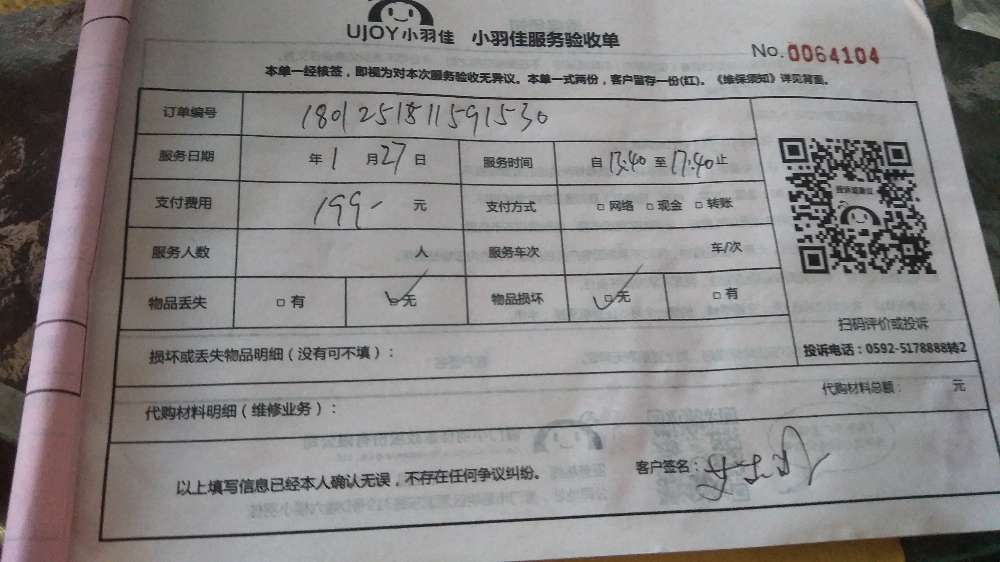 UJOY小羽佳 小羽佳服务验收单
No.0064104
本单一经核签，即视为对本次服务验收无异议。本单一式两份，客户留存一份(红)。《维保须知》详见背面。
订单编号 1801251811591530
服务日期 年1月27日 服务时间 自13:40至17:40止
支付费用 199- 元 支付方式 □网络 □现金 □转账
服务人数 人 服务车次 车/次
物品丢失 □有 □无 物品损坏 □无 □有
扫码评价或投诉
损坏或丢失物品明细（没有可不填）：
投诉电话：0592-5178888转2
代购材料明细（维修业务）：
代购材料总额： 元
以上填写信息已经本人确认无误，不存在任何争议纠纷。
客户签名：